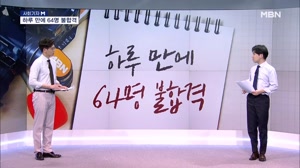 사회기자 M
하루 만에 64명 불합격
MBN
하루 만에
64명 불합격